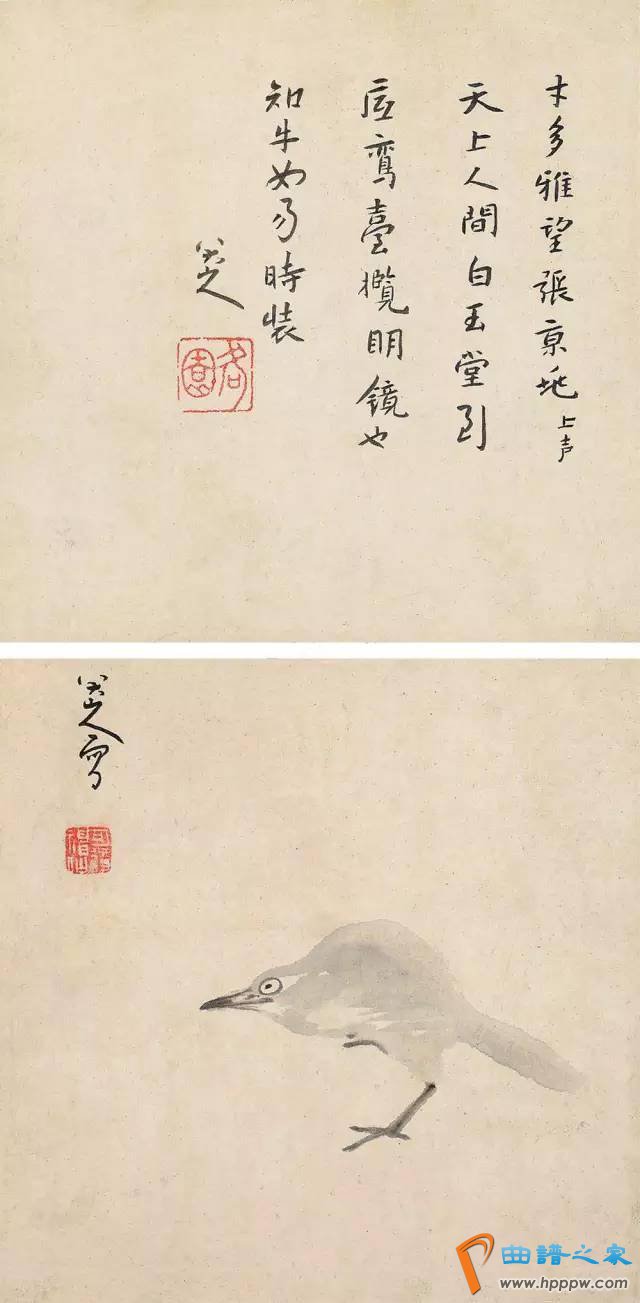 才多雅望張京兆 上声
天上人間白玉堂到
底鸞臺攬明鏡也
知牛女易時裝
八大山人
八大山人寫
曲谱之家
www.hpppw.com